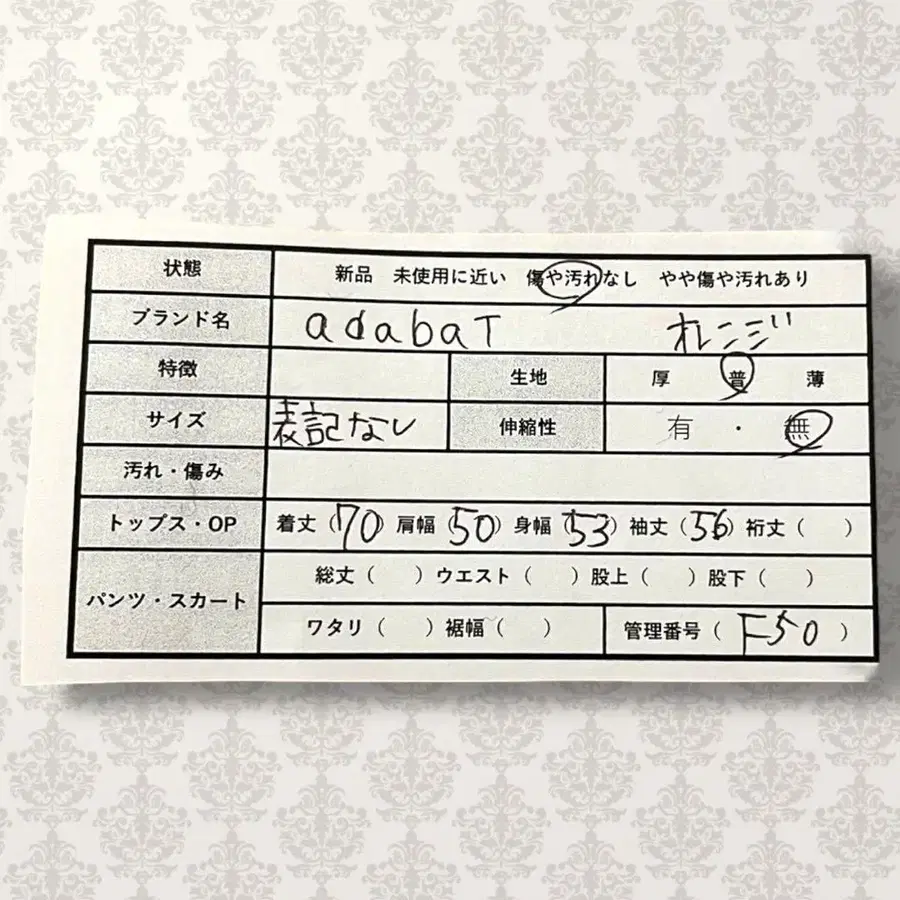 状態 新品 未使用に近い 傷や汚れなし やや傷や汚れあり
ブランド名 adabaT オレンジ
特徴 生地 厚 普 薄
サイズ 表記なし 伸縮性 有 ・ 無
汚れ・傷み
トップス・OP 着丈（70）肩幅（50）身幅（53）袖丈（56）裄丈（ ）
パンツ・スカート 総丈（ ）ウエスト（ ）股上（ ）股下（ ）
ワタリ（ ）裾幅（ ） 管理番号（F50）